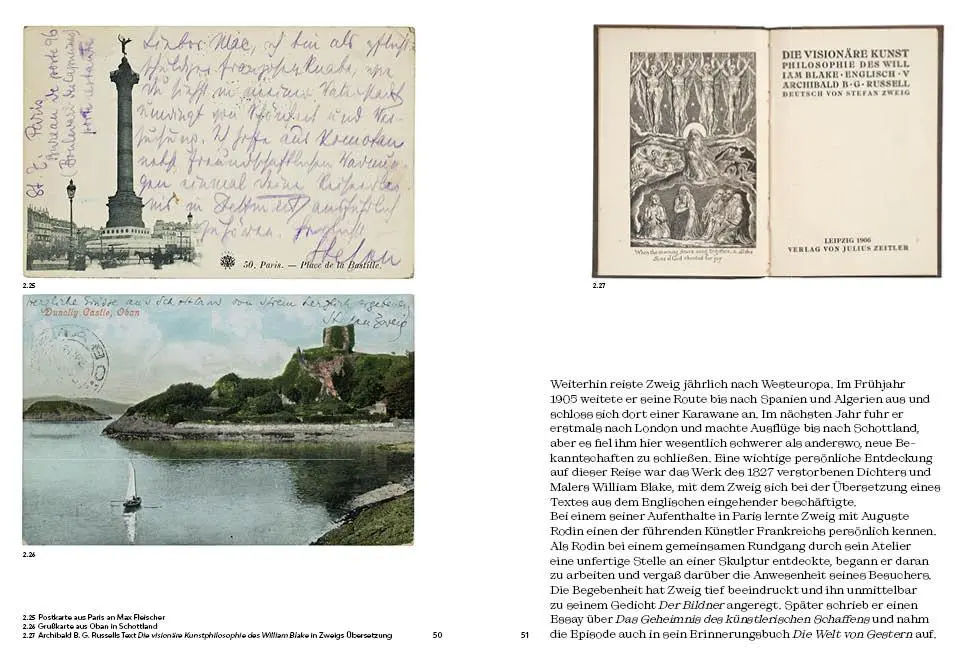 St. Z. Paris
Bureau de poste 96
(Boulevard des Capucines)
poste restante
Lieber Mac, ich bin als pflicht-
schuldiger
Du siehst in
von Schönheit und Ver-
suchung. Ich hoffe aus Komotau
nebst freundschaftlichen
gen einmal Deine
ausführlich
zu hören. Herzlichst
Stefan
50. Paris. — Place de la Bastille.
2.25
Herzliche Grüsse aus Schottland von Ihrem herzlich ergebenen
Stefan Zweig
Dunolly Castle, Oban
OBAN
2.26
2.25 Postkarte aus Paris an Max Fleischer
2.26 Grußkarte aus Oban in Schottland
2.27 Archibald B. G. Russells Text Die visionäre Kunstphilosophie des William Blake in Zweigs Übersetzung
50
When the morning Stars sang together, & all the
Sons of God shouted for joy
DIE VISIONÄRE KUNST
PHILOSOPHIE DES WILL
IAM BLAKE · ENGLISCH · V
ARCHIBALD B · G · RUSSELL
DEUTSCH VON STEFAN ZWEIG
LEIPZIG 1906
VERLAG VON JULIUS ZEITLER
2.27
Weiterhin reiste Zweig jährlich nach Westeuropa. Im Frühjahr
1905 weitete er seine Route bis nach Spanien und Algerien aus und
schloss sich dort einer Karawane an. Im nächsten Jahr fuhr er
erstmals nach London und machte Ausflüge bis nach Schottland,
aber es fiel ihm hier wesentlich schwerer als anderswo, neue Be-
kanntschaften zu schließen. Eine wichtige persönliche Entdeckung
auf dieser Reise war das Werk des 1827 verstorbenen Dichters und
Malers William Blake, mit dem Zweig sich bei der Übersetzung eines
Textes aus dem Englischen eingehender beschäftigte.
Bei einem seiner Aufenthalte in Paris lernte Zweig mit Auguste
Rodin einen der führenden Künstler Frankreichs persönlich kennen.
Als Rodin bei einem gemeinsamen Rundgang durch sein Atelier
eine unfertige Stelle an einer Skulptur entdeckte, begann er daran
zu arbeiten und vergaß darüber die Anwesenheit seines Besuchers.
Die Begebenheit hat Zweig tief beeindruckt und ihn unmittelbar
zu seinem Gedicht Der Bildner angeregt. Später schrieb er einen
Essay über Das Geheimnis des künstlerischen Schaffens und nahm
die Episode auch in sein Erinnerungsbuch Die Welt von Gestern auf.
51